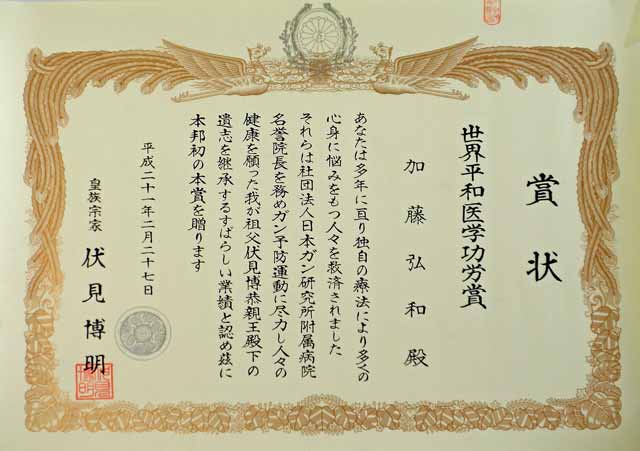 賞状
世界平和医学功労賞
加藤弘和殿
あなたは多年に亘り独自の療法により多くの
心身に悩みをもつ人々を救済されました
それらは社団法人日本ガン研究所附属病院
名誉院長を務めガン予防運動に尽力し人々の
健康を願った我が祖父伏見博恭親王殿下の
遺志を継承するすばらしい業績と認め茲に
本邦初の本賞を贈ります
平成二十一年二月二十七日
皇族宗家 伏見博明